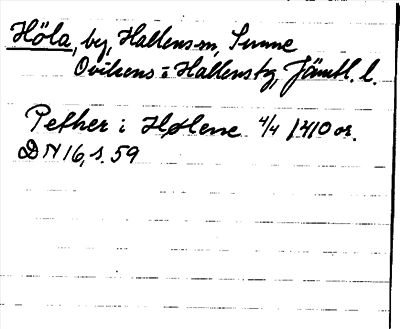 Höla, by, Hallens sn, Sunne
Ovikens o Hallens tg, Jämtl. l.
Pether i Hølene 4/4 1410 or.
DN 16, s. 59